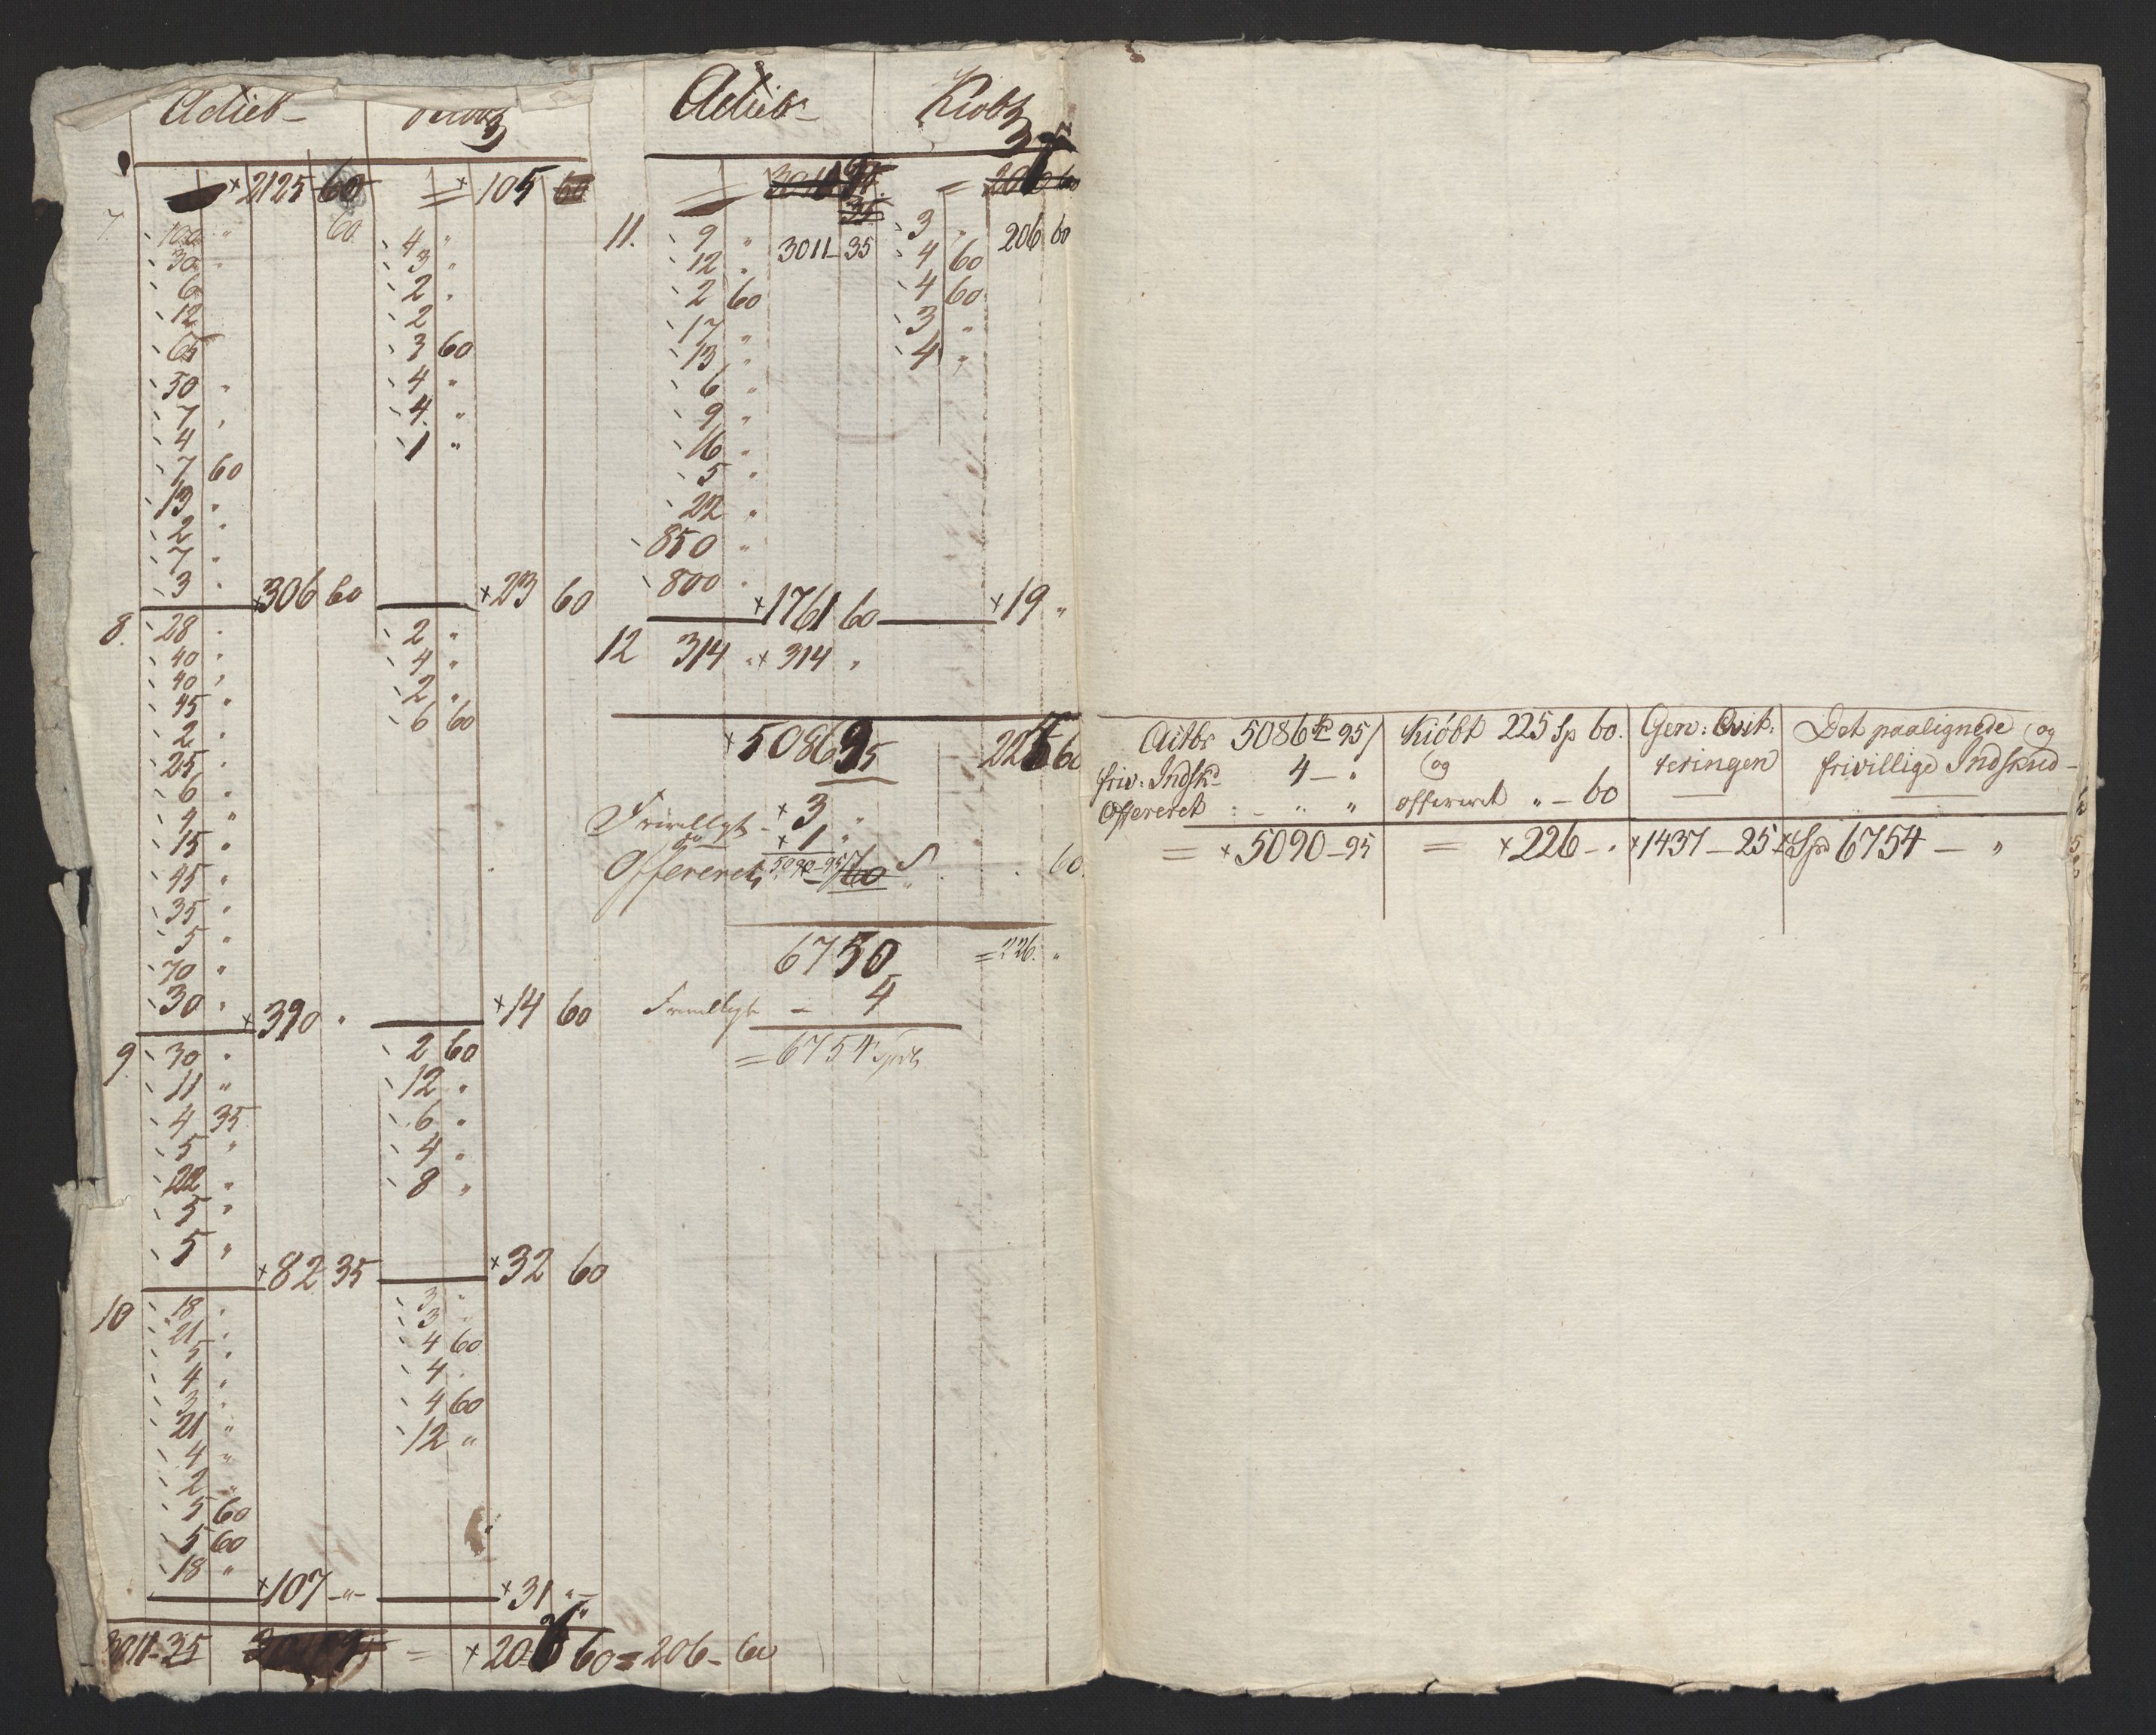 Actieb Kiøbt
× 2125 60 = × 105 60
60
7. 100 " 4 "
30 " 3 "
6 2 "
12 2
65 3 60
50 " 4 "
7 " 4 "
4 1 "
7 60
13 "
2 "
7 "
3 " × 306 60 × 23 60
8. 28 " 2 "
40 " 4 "
40 " 2 "
45 " 6 60
2 "
25 "
6 "
4 "
15 "
45 "
35 "
5 "
70 "
30 " × 390 " × 14 60
9. 30 " 2 60
11 " 12 "
4 35 6 "
5 " 4 "
22 " 8 "
5 "
5 " × 82 35 × 32 60
10 18 " 3 "
21 " 3 "
5 " 4 60
4 " 4 "
3 " 4 60
21 " 12 "
4 "
2 "
5 60
5 60
18 " × 107 - " - × 31 " -
3011-35 = × 206 60 = 206 - 60
Actieb Kiøbt
= 206 60
35
11. 9 " 3011-35 3 " 206 60
12 " 4 60
2 60 4 60
17 " 3 "
13 " 4 "
6 "
9 "
16 "
5 "
22 "
850 "
800 " × 1761 60 × 19 "
12 314 " × 314 "
× 5086 95 225 60
Frivilligt - × 3 "
do × 1 "
Offereret 5090-95 60 60
6750 = 226. "
Frivilligt - 4
= 6754 Spd
Actbr 5086 95 Kiøbt 225 Sp 60. Gen: Qvit: Det paalignede og
friv: Indsk 4 - " og teringen frivillige Indskud -
Offereret " " offereret " - 60
= × 5090-95 = × 226 - " × 1437 - 25 × Spd 6754 - "